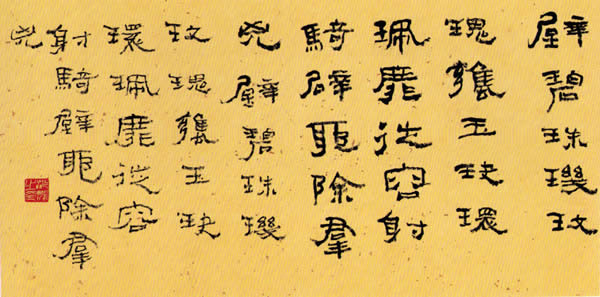 璧碧珠璣玫
瑰甕玉玦環
珮靡從容射
騎辟耶除羣
兇璧碧珠璣
玫瑰甕玉玦
環珮靡從容
射騎辟耶除羣
兇